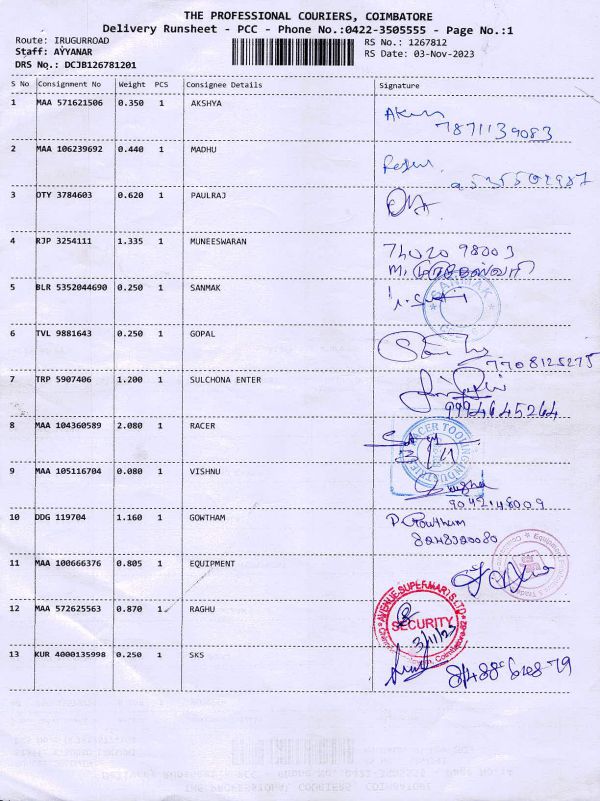 THE PROFESSIONAL COURIERS, COIMBATORE
Delivery Runsheet - PCC - Phone No.:0422-3505555 - Page No.:1
Route: IRUGURROAD RS No.: 1267812
Staff: AYYANAR RS Date: 03-Nov-2023
DRS No.: DCJB126781201
S No Consignment No Weight PCS Consignee Details Signature
1 MAA 571621506 0.350 1 AKSHYA
7871139083
2 MAA 106239692 0.440 1 MADHU
9535502987
3 OTY 3784603 0.620 1 PAULRAJ
4 RJP 3254111 1.335 1 MUNEESWARAN
74020 98003
5 BLR 5352044690 0.250 1 SANMAK
SANMAK
6 TVL 9881643 0.250 1 GOPAL
7708125275
7 TRP 5907406 1.200 1 SULCHONA ENTER
9994645264
8 MAA 104360589 2.080 1 RACER
RACER TOOLING INDUSTRIES
3/11
9 MAA 105116704 0.080 1 VISHNU
9042148009
10 DDG 119704 1.160 1 GOWTHAM
P. Gowtham
8248320080
11 MAA 100666376 0.805 1 EQUIPMENT
12 MAA 572625563 0.870 1 RAGHU
AVENUE SUPERMARTS LTD
SECURITY
3/11/23
13 KUR 4000135998 0.250 1 SKS